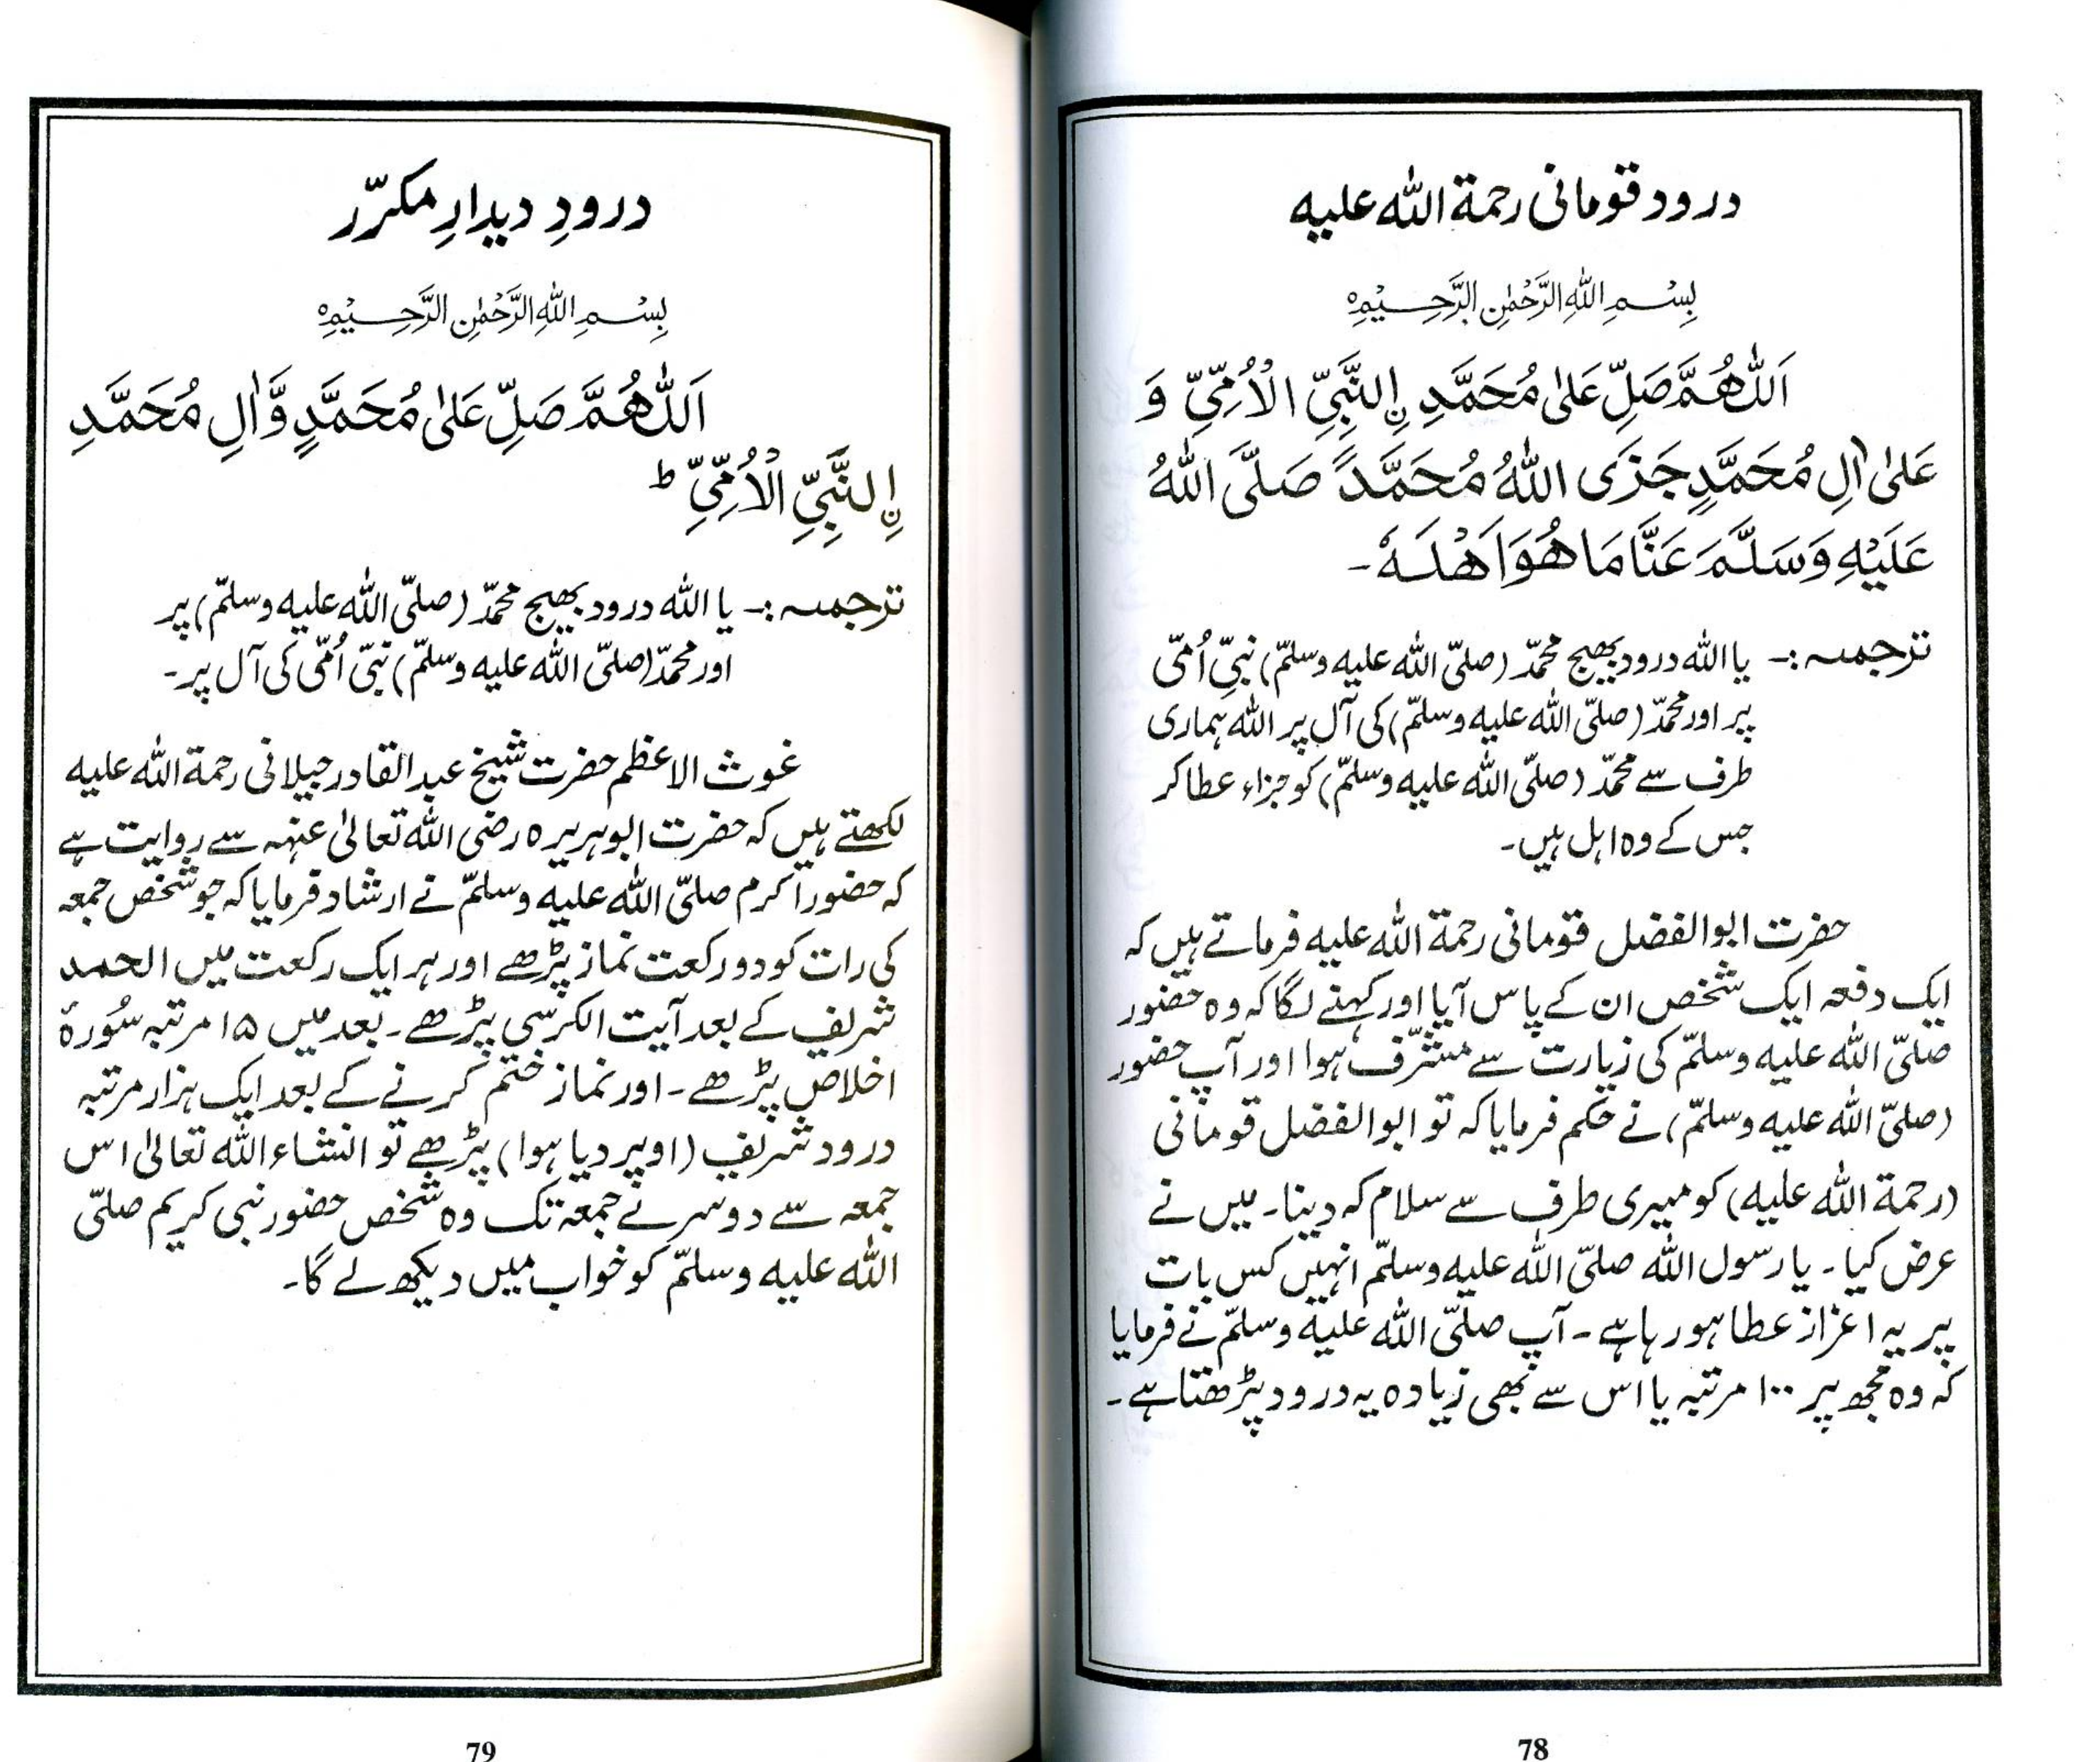 درود قومانی رحمۃ اللہ علیہ
بِسْمِ اللّٰهِ الرَّحْمٰنِ الرَّحِيْمِ
اَللّٰهُمَّ صَلِّ عَلٰى مُحَمَّدِ ۣالنَّبِيِّ الْاُمِّيِّ وَ
عَلٰى اٰلِ مُحَمَّدٍ جَزَى اللّٰهُ مُحَمَّدً صَلَّى اللّٰهُ
عَلَيْهِ وَسَلَّمَ عَنَّا مَا هُوَ اَهْلَهٗ۔
ترجمہ :۔ یا اللہ درود بھیج محمّد (صلّی اللہ علیہ وسلمّ) نبیِّ اُمّی
پر اور محمّد (صلّی اللہ علیہ وسلمّ) کی آل پر اللہ ہماری
طرف سے محمّد (صلّی اللہ علیہ وسلمّ) کو جزاء عطا کر
جس کے وہ اہل ہیں۔
حضرت ابوالفضل قومانی رحمۃ اللہ علیہ فرماتے ہیں کہ
ایک دفعہ ایک شخص ان کے پاس آیا اور کہنے لگا کہ وہ حضور
صلّی اللہ علیہ وسلمّ کی زیارت سے مشرّف ہوا اور آپ حضور
(صلّی اللہ علیہ وسلمّ) نے حکم فرمایا کہ تو ابوالفضل قومانی
(رحمۃ اللہ علیہ) کو میری طرف سے سلام کہ دینا۔ میں نے
عرض کیا۔ یا رسول اللہ صلّی اللہ علیہ وسلمّ انہیں کس بات
پر یہ اعزاز عطا ہو رہا ہے۔ آپ صلّی اللہ علیہ وسلمّ نے فرمایا
کہ وہ مجھ پر ۱۰۰ مرتبہ یا اس سے بھی زیادہ یہ درود پڑھتا ہے۔
78
درودِ دیدارِ مکرّر
بِسْمِ اللّٰهِ الرَّحْمٰنِ الرَّحِيْمِ
اَللّٰهُمَّ صَلِّ عَلٰى مُحَمَّدٍ وَّاٰلِ مُحَمَّدِ
ۣالنَّبِيِّ الْاُمِّيِّ ط
ترجمہ :۔ یا اللہ درود بھیج محمّد (صلّی اللہ علیہ وسلمّ) پر
اور محمّد (صلّی اللہ علیہ وسلمّ) نبیّ اُمّی کی آل پر۔
غوث الاعظم حضرت شیخ عبدالقادر جیلانی رحمۃ اللہ علیہ
لکھتے ہیں کہ حضرت ابوہریرہ رضی اللہ تعالیٰ عنہہ سے روایت ہے
کہ حضور اکرم صلّی اللہ علیہ وسلمّ نے ارشاد فرمایا کہ جو شخص جمعہ
کی رات کو دو رکعت نماز پڑھے اور ہر ایک رکعت میں الحمد
شریف کے بعد آیت الکرسی پڑھے۔ بعد میں ۱۵ مرتبہ سُورۂ
اخلاص پڑھے۔ اور نماز ختم کرنے کے بعد ایک ہزار مرتبہ
درود شریف (اوپر دیا ہوا) پڑھے تو انشاء اللہ تعالیٰ اس
جمعہ سے دوسرے جمعہ تک وہ شخص حضور نبی کریم صلّی
اللہ علیہ وسلمّ کو خواب میں دیکھ لے گا۔
79